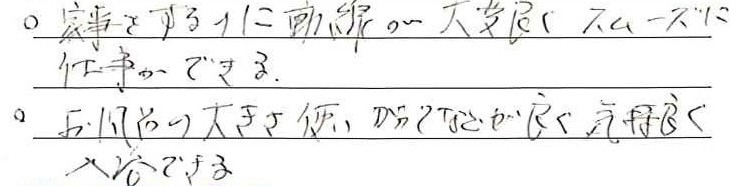 ○ 家事をするのに動線が大変良くスムーズに
仕事ができる.
○ お風呂の大きさ使いがってなどが良く気持良く
入浴できる